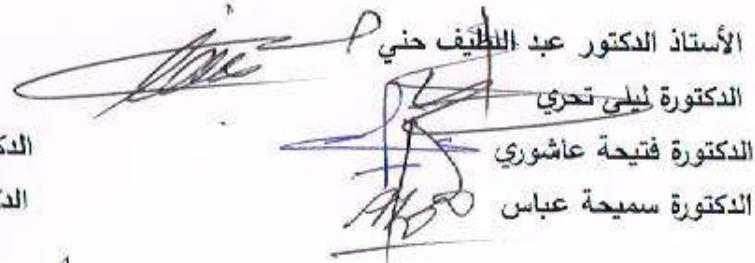 الأستاذ الدكتور عبد اللطيف حني
الدكتورة ليلى تحري
الدكتورة فتيحة عاشوري
الدكتورة سميحة عباس